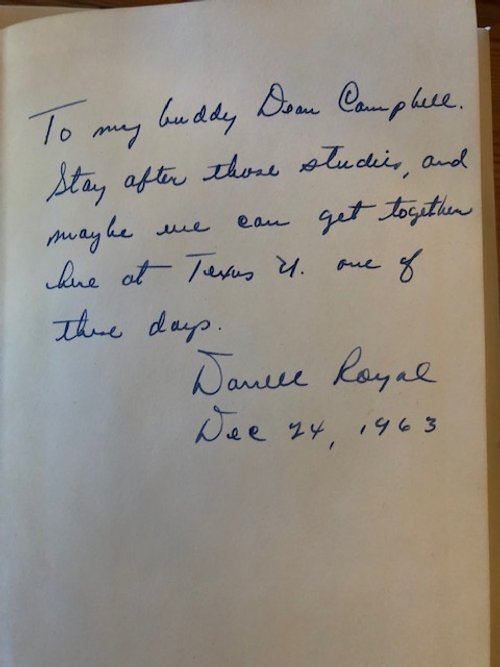 To my buddy Dean Campbell.
Stay after those studies, and
maybe we can get together
here at Texas U. one of
these days.
Darrell Royal
Dec 24, 1963